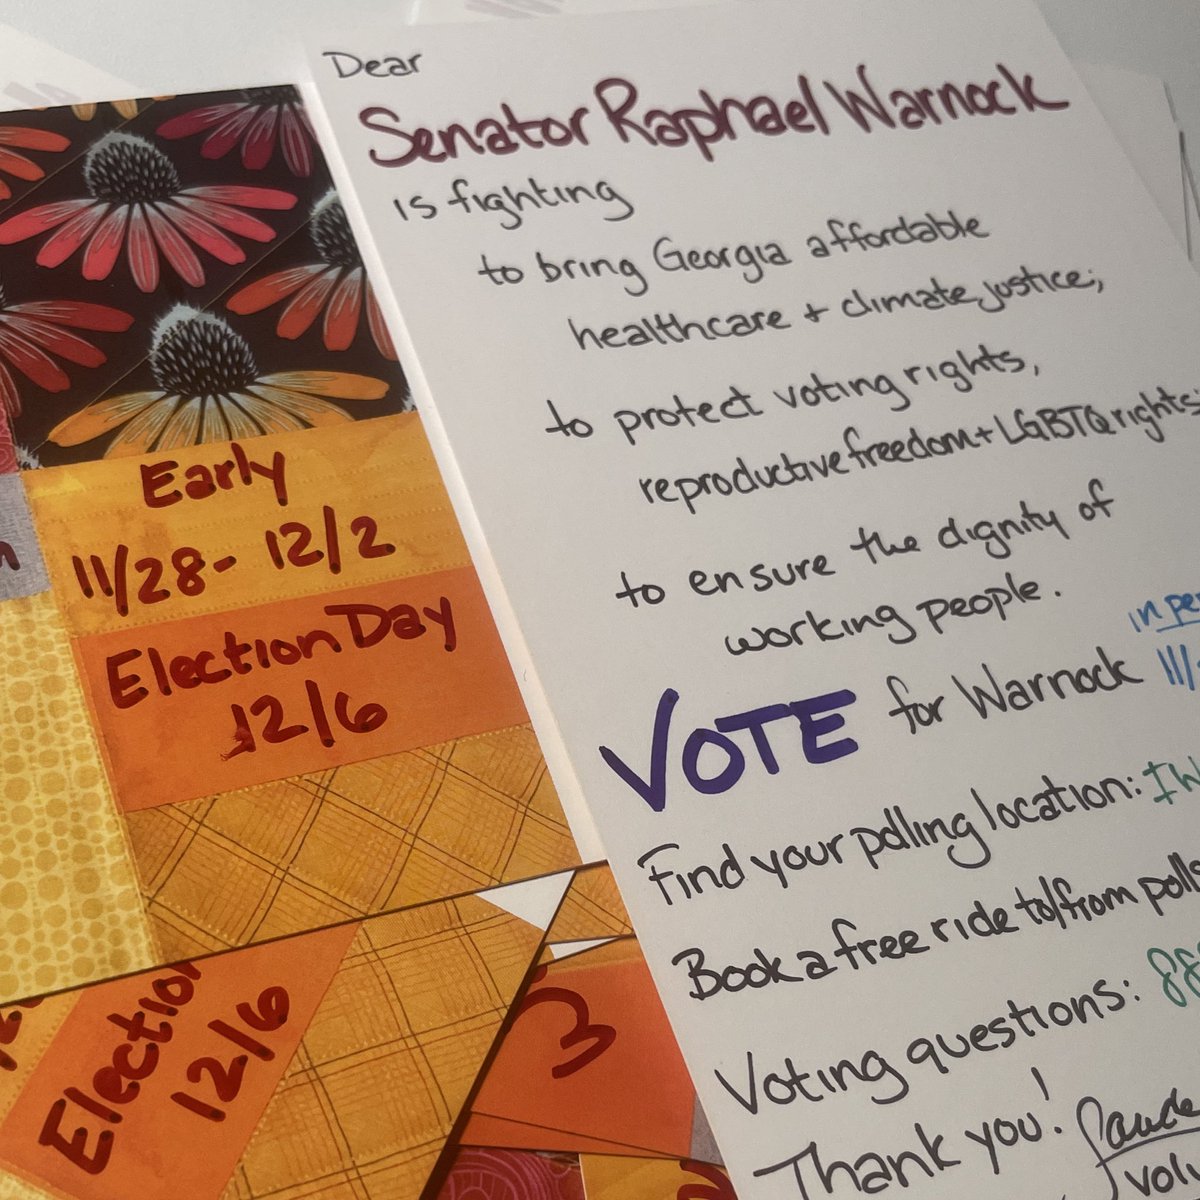 Dear
Senator Raphael Warnock
is fighting
to bring Georgia affordable
healthcare + climate justice;
to protect voting rights,
reproductive freedom + LGBTQ rights;
to ensure the dignity of
working people.
in pe
VOTE for Warnock 11/
Find your polling location: IW
Book a free ride to/from polls
Voting questions: 888
Thank you!
volu
Early
11/28- 12/2
Election Day
12/6
Election
12/6
3